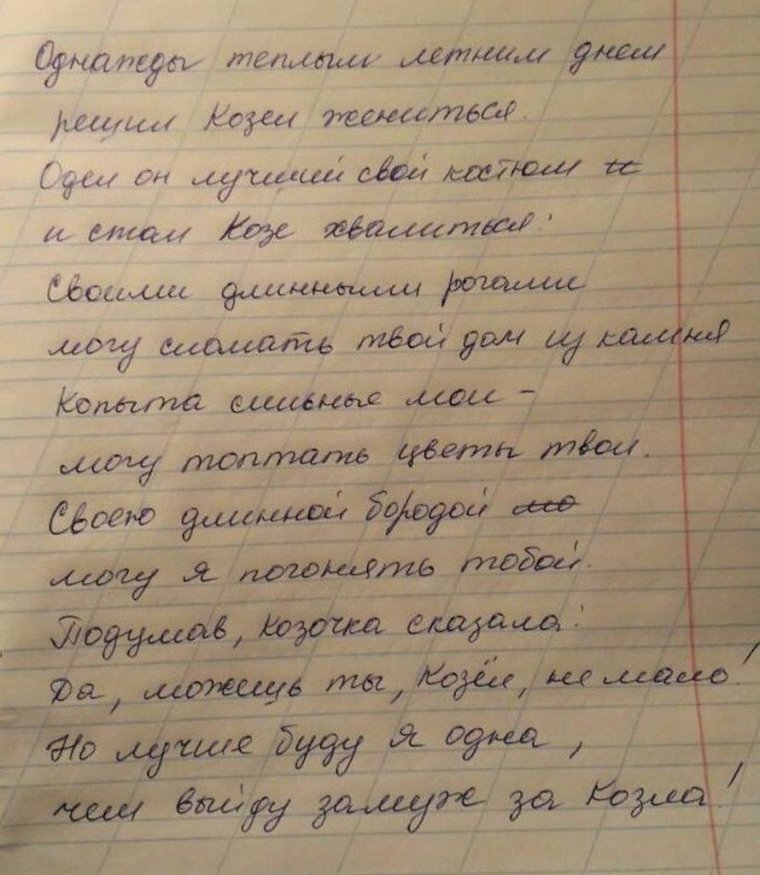 Однажды теплым летним днем
решил Козел жениться.
Одел он лучший свой костюм
и стал Козе хвалиться:
Своими длинными рогами
могу сломать твой дом из камня
Копыта сильные мои -
могу топтать цветы твои.
Своею длинной бородой
могу я погонять тобой.
Подумав, козочка сказала:
Да, можешь ты, Козёл, не мало!
Но лучше буду я одна,
чем выйду замуж за Козла!